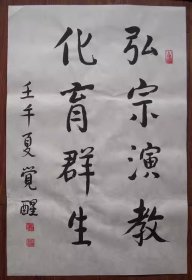 弘宗演教
化育群生
壬午夏覺醒